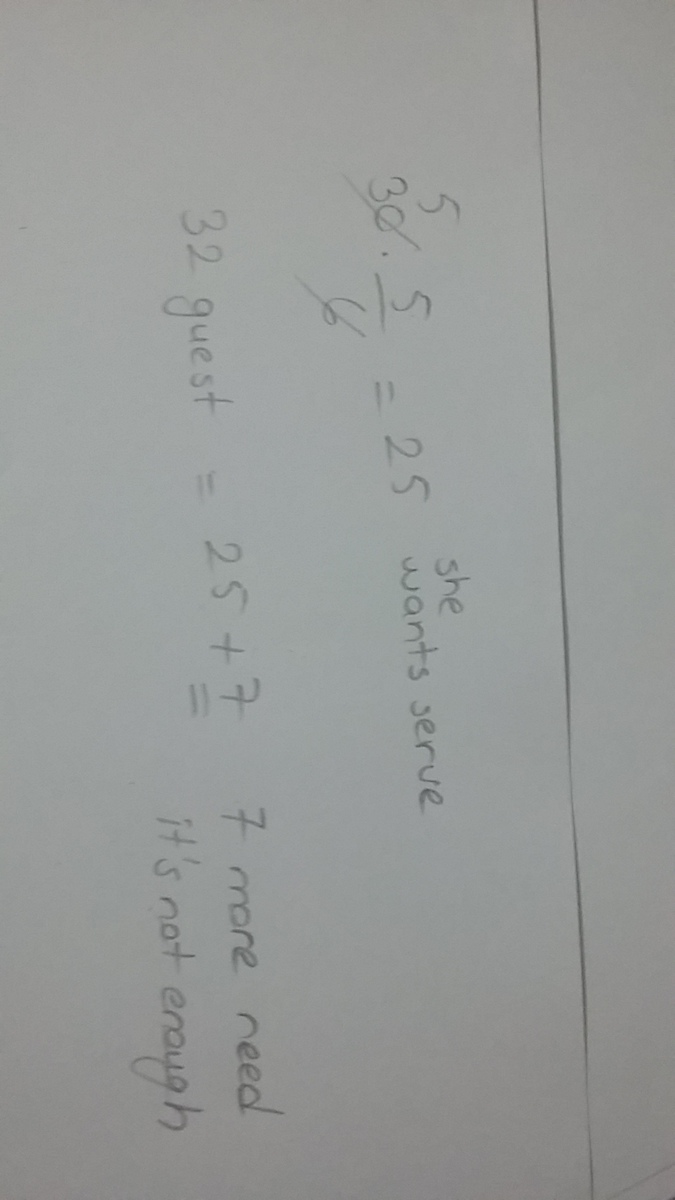 5
30 · 5/6 = 25 she wants serve
32 guest = 25 + 7 7 more need
it's not enough